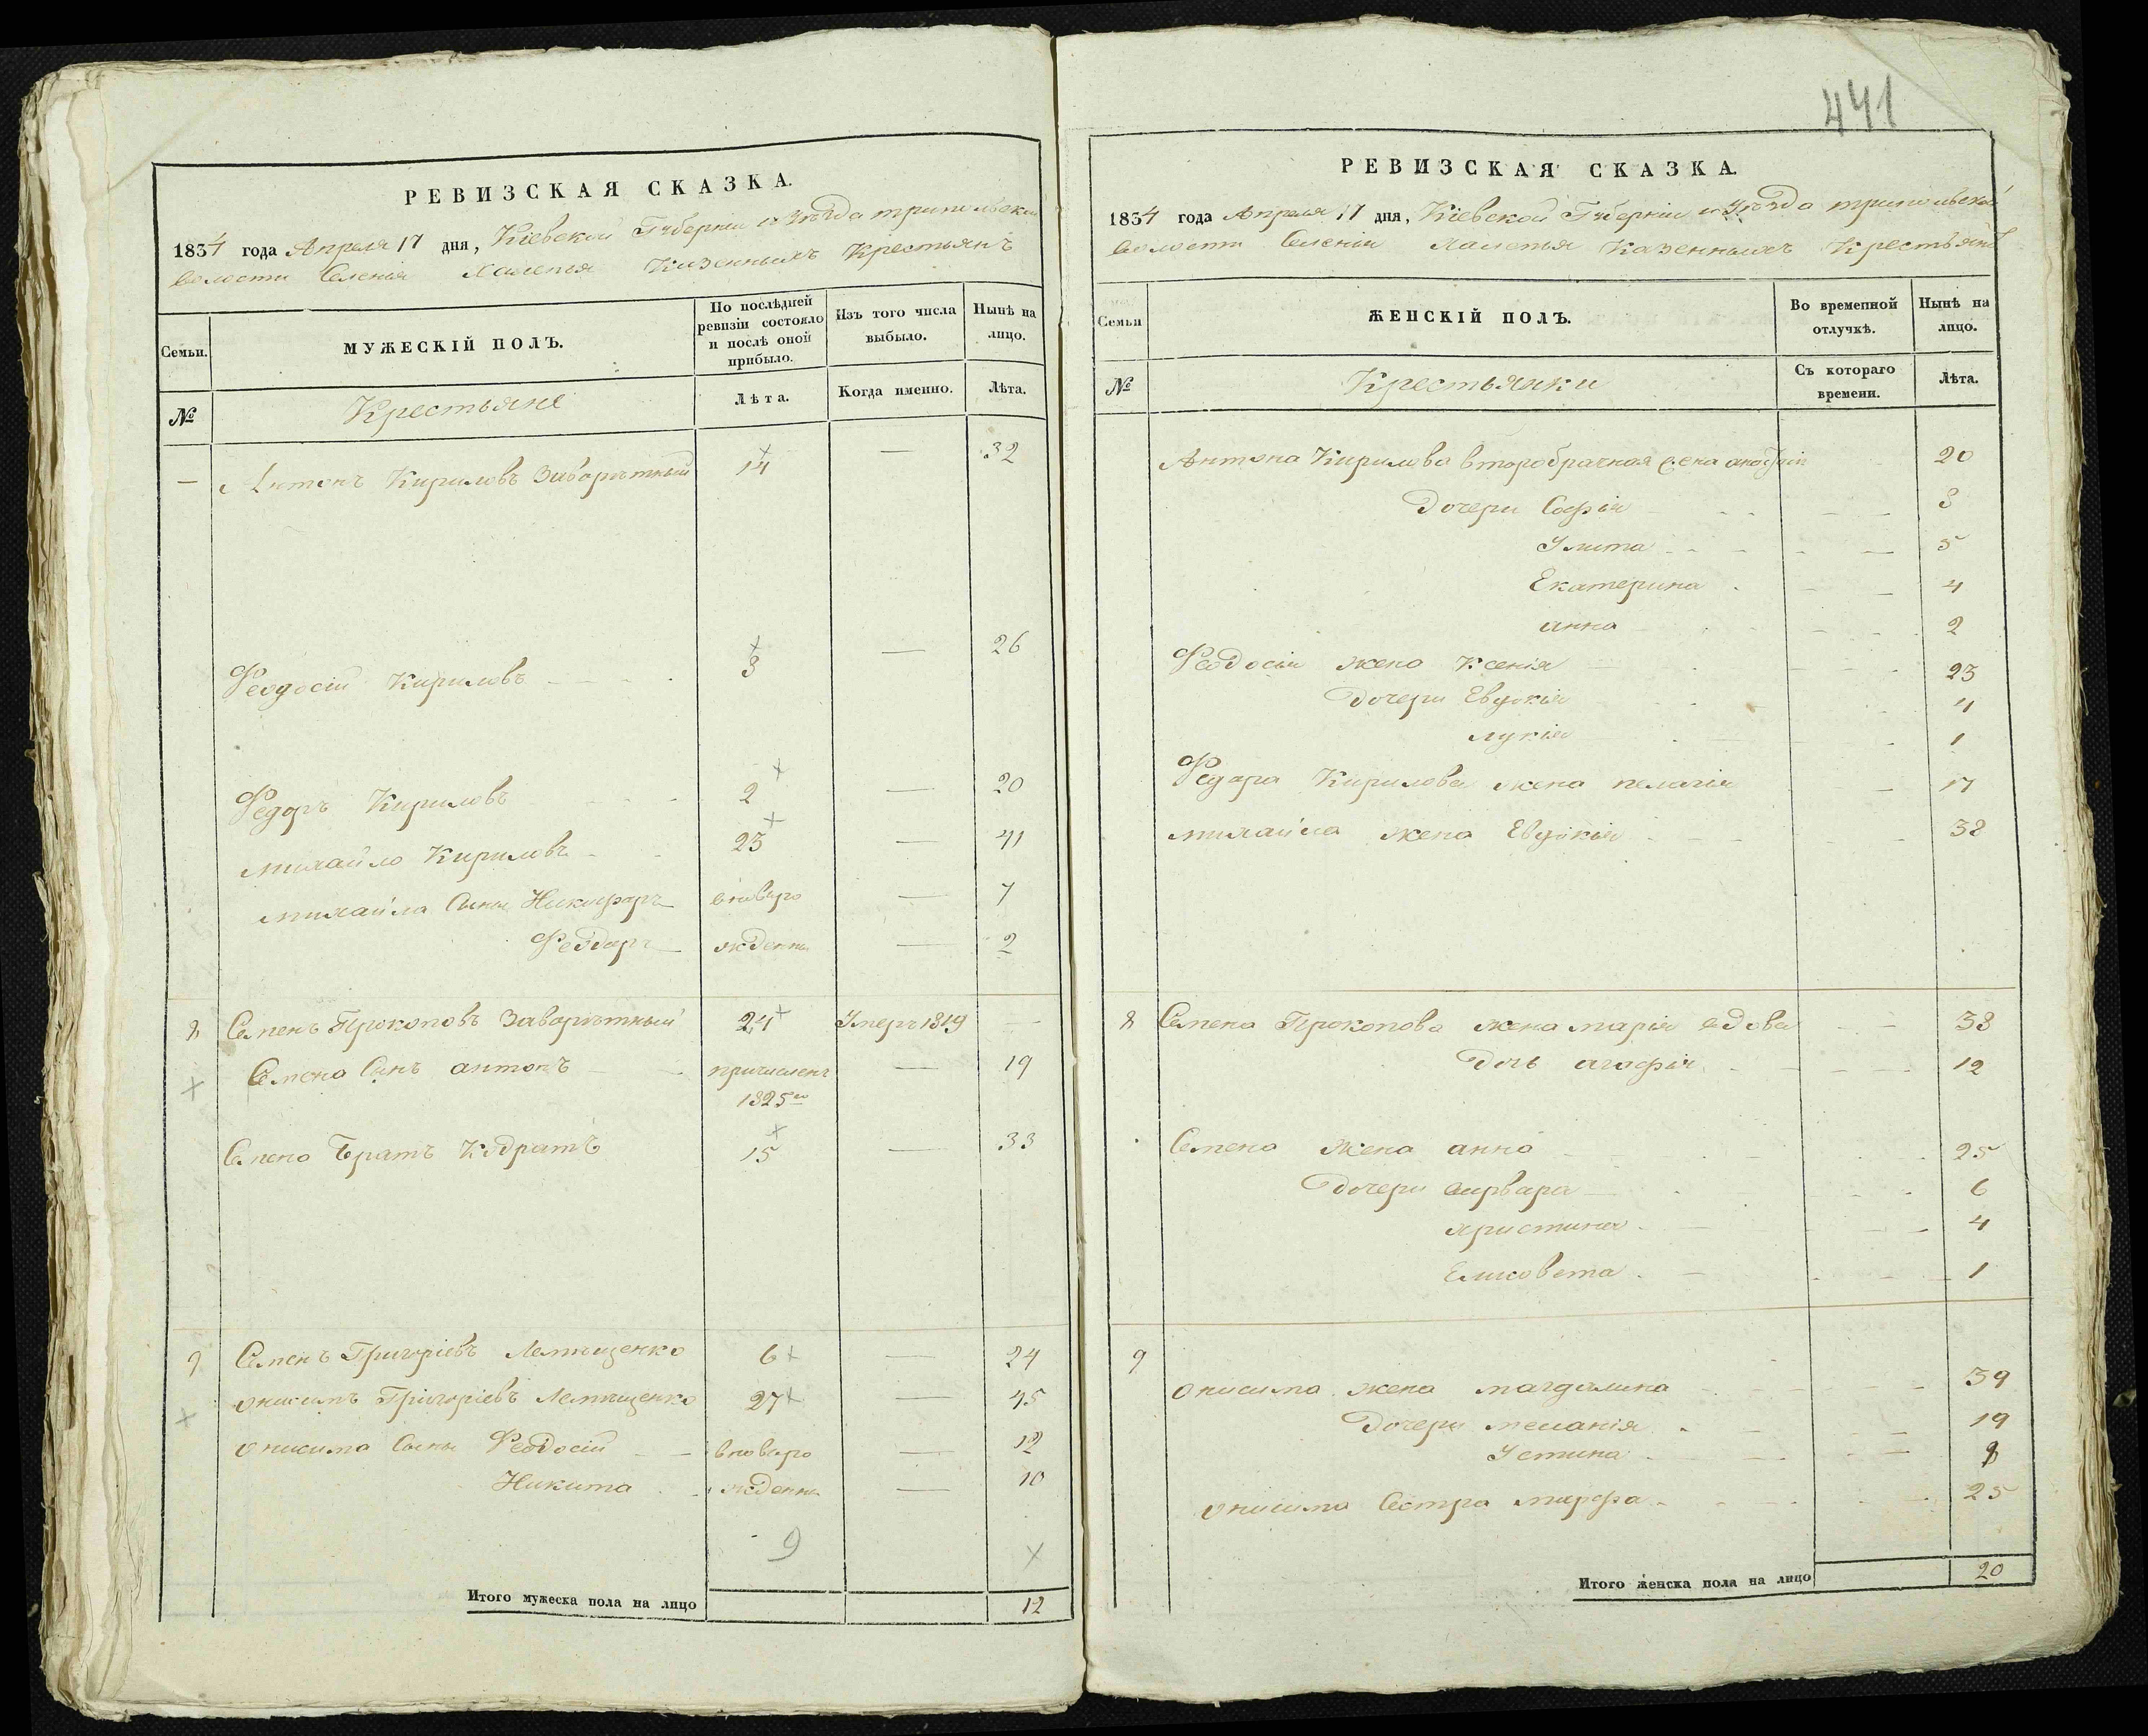 441
РЕВИЗСКАЯ СКАЗКА.
1834 года Апреля 17 дня, Кіевской Губерніи и Уѣзда трипольской
волости Селенія Халепья Казенныхъ Крестьянъ
Семьи.
МУЖЕСКІЙ ПОЛЪ.
По послѣдней ревизіи состояло и послѣ оной прибыло.
Изъ того числа выбыло.
Нынѣ на лицо.
№
Крестьяне
Лѣта.
Когда именно.
Лѣта.
— Антонъ Кириловъ Заворотный 14 — 32
Феодосій Кириловъ 8 — 26
Федоръ Кириловъ 2 — 20
михайло Кириловъ 23 — 41
михайла Сыны Никифоръ вновьро — 7
Феодоръ жденны — 2
8 Семенъ Прокоповъ Заворотный 24 Умеръ 1819 —
Семена Сынъ антонъ причисленъ — 19
1825го
Семена Братъ Кодратъ 15 — 33
9 Семенъ Григоріевъ 6 — 24
онисимъ Григоріевъ 27 — 45
онисима Сыны Феодосій вновьро — 12
Никита жденны — 10
9
Итого мужеска пола на лицо 12
РЕВИЗСКАЯ СКАЗКА.
1834 года Апреля 17 дня, Кіевской Губерніи и Уѣзда трипольской
волости Селенія Халепья Казенныхъ Крестьянъ
Семьи
ЖЕНСКІЙ ПОЛЪ.
Во временной отлучкѣ.
Нынѣ на лицо.
№
Крестьянки
Съ котораго времени.
Лѣта.
Антона Кирилова второбрачная жена 20
Дочери Софія 8
Улита 5
Екатерина 4
анна 2
Феодосія жена Ксенія 23
Дочери Евдокія 4
лукія 1
Федора Кирилова жена пелагія 17
михайла жена Евдокія 38
8 Семена Прокопова жена марія вдова 38
Дочь агафія 12
Семена жена анна 25
Дочери варвара 6
христина 4
Елисовета 1
9
онисима жена магдалина 39
Дочери меланія 19
Устина 8
онисима Сестра марфа 25
Итого женска пола на лицо 20